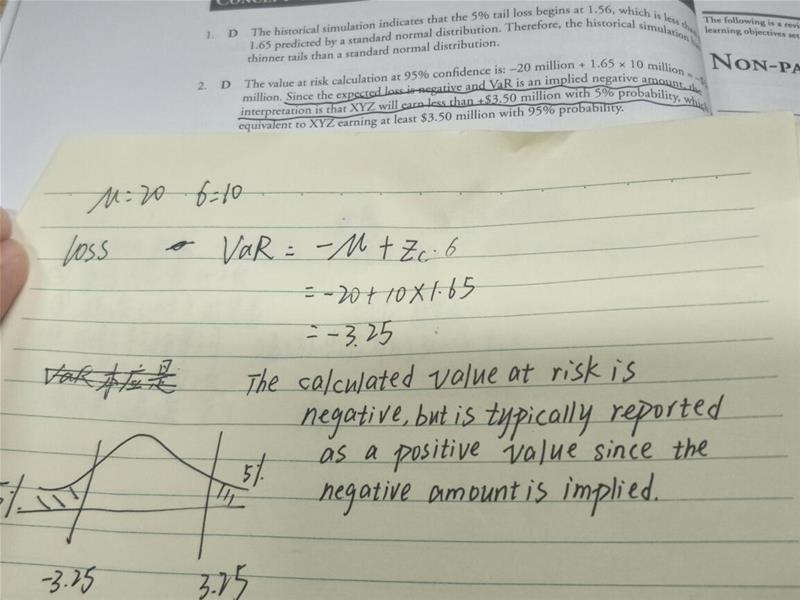 1. D The historical simulation indicates that the 5% tail loss begins at 1.56, which is less than
1.65 predicted by a standard normal distribution. Therefore, the historical simulation
thinner tails than a standard normal distribution.
2. D The value at risk calculation at 95% confidence is: –20 million + 1.65 × 10 million =
million. Since the expected loss is negative and VaR is an implied negative amount, the
interpretation is that XYZ will earn less than +$3.50 million with 5% probability, which
equivalent to XYZ earning at least $3.50 million with 95% probability.
The following is a
learning objectives set
NON-PA
μ=20 б=10
loss VaR = -μ + Zc·б
= -20+10×1.65
= -3.25
The calculated value at risk is
negative, but is typically reported
as a positive value since the
negative amount is implied.
5%
-3.25 3.25